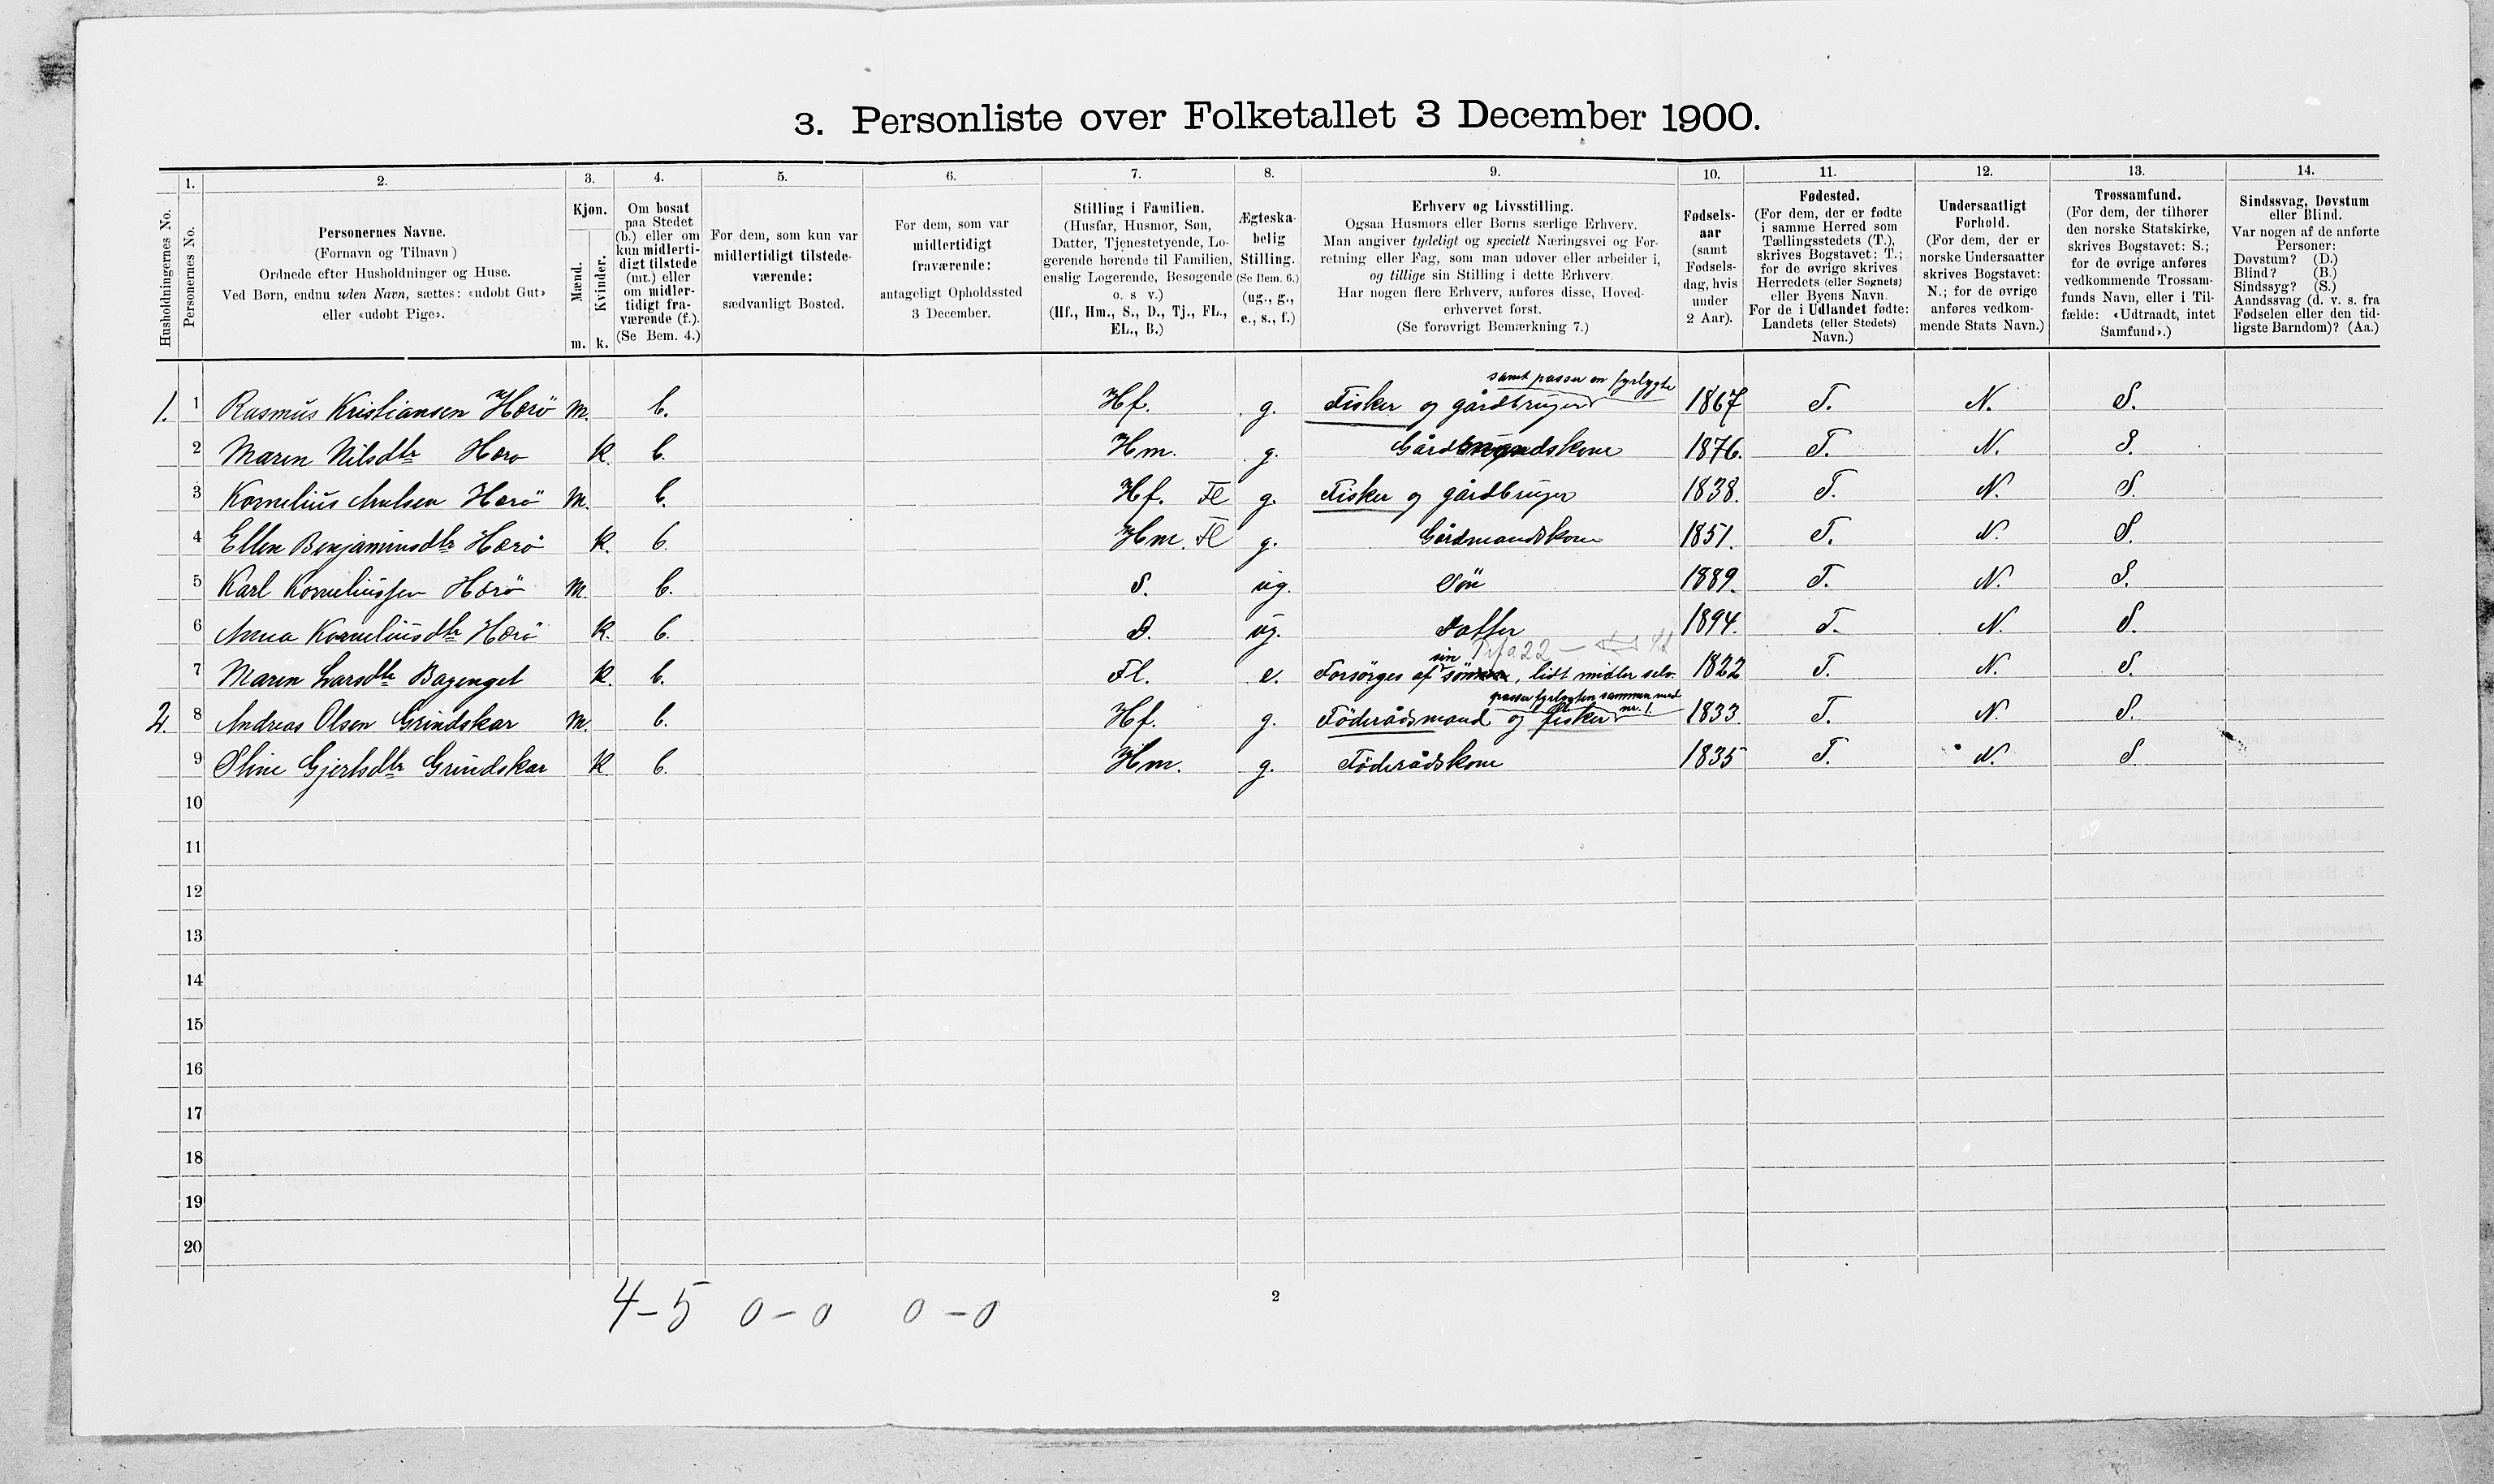 3. Personliste over Folketallet 3 December 1900.
1. 2. 3. 4. 5. 6. 7. 8. 9. 10. 11. 12. 13. 14.
Husholdningernes No.
Personernes No.
Personernes Navne.
(Fornavn og Tilnavn)
Ordnede efter Husholdninger og Huse.
Ved Børn, endnu uden Navn, sættes: «udøbt Gut»
eller «udøbt Pige».
Kjøn.
Mænd.
Kvinder.
m. k.
Om bosat
paa Stedet
(b.) eller om
kun midlerti-
digt tilstede
(mt.) eller
om midler-
tidigt fra-
værende (f.).
(Se Bem. 4.)
For dem, som kun var
midlertidigt tilstede-
værende:
sædvanligt Bosted.
For dem, som var
midlertidigt
fraværende:
antageligt Opholdssted
3 December.
Stilling i Familien.
(Husfar, Husmor, Søn,
Datter, Tjenestetyende, Lo-
gerende hørende til Familien,
enslig Logerende, Besøgende
o. s v.)
(Hf., Hm., S., D., Tj., FL.,
EL., B.)
Ægteska-
belig
Stilling.
(Se Bem. 6.)
(ug., g.,
e., s., f.)
Erhverv og Livsstilling.
Ogsaa Husmors eller Børns særlige Erhverv.
Man angiver tydeligt og specielt Næringsvei og For-
retning eller Fag, som man udøver eller arbeider i,
og tillige sin Stilling i dette Erhverv.
Har nogen flere Erhverv, anføres disse, Hoved-
erhvervet først.
(Se forøvrigt Bemærkning 7.)
Fødsels-
aar
(samt
Fødsels-
dag, hvis
under
2 Aar).
Fødested.
(For dem, der er fødte
i samme Herred som
Tællingsstedets (T.),
skrives Bogstavet: T.;
for de øvrige skrives
Herredets (eller Sognets)
eller Byens Navn.
For de i Udlandet fødte:
Landets (eller Stedets)
Navn.)
Undersaatligt
Forhold.
(For dem, der er
norske Undersaatter
skrives Bogstavet:
N.; for de øvrige
anføres vedkom-
mende Stats Navn.)
Trossamfund.
(For dem, der tilhører
den norske Statskirke,
skrives Bogstavet: S.;
for de øvrige anføres
vedkommende Trossam-
funds Navn, eller i Til-
fælde: «Udtraadt, intet
Samfund».)
Sindssvag, Døvstum
eller Blind.
Var nogen af de anførte
Personer:
Døvstum? (D.)
Blind? (B.)
Sindssyg? (S.)
Aandssvag (d. v. s. fra
Fødselen eller den tid-
ligste Barndom)? (Aa.)
samt passer en fyrlygte
1. 1 Rasmus Kristiansen Hærö m. b. Hf. g. Fisker og gårdbruger 1867 T. N. S.
2 Maren Nilsdtr Hærö k. b. Hm. g. 1876. T. N. S.
3 Kornelius Hærö m. b. Hf. Fl g. Fisker og gårdbruger 1838. T. N. S.
4 Ellen Benjaminsdtr Hærö k. b. Hm. Fl g. Gårdmandskone 1851. T. N. S.
5 Karl Korneliussen Hærö m. b. S. ug. Sön 1889. T. N. S.
6 Anna Korneliusdtr Hærö k. b. D. ug. Datter 1894. T. N. S.
sin
7 Maren Larsdtr k. b. Fl. e. Forsörges af sön, lidt midler selv. 1822 T. N. S.
passer fyrlygten sammen med
nr. 1.
2. 8 Andreas Olsen Grindskar m. b. Hf. g. Föderådsmand og fisker 1833. T. N. S.
9 Oline Gjertsdtr Grindskar k b. Hm. g. Föderådskone 1835 T. N. S.
10
11
12
13
14
15
16
17
18
19
20
4-5 0-0 0-0
2